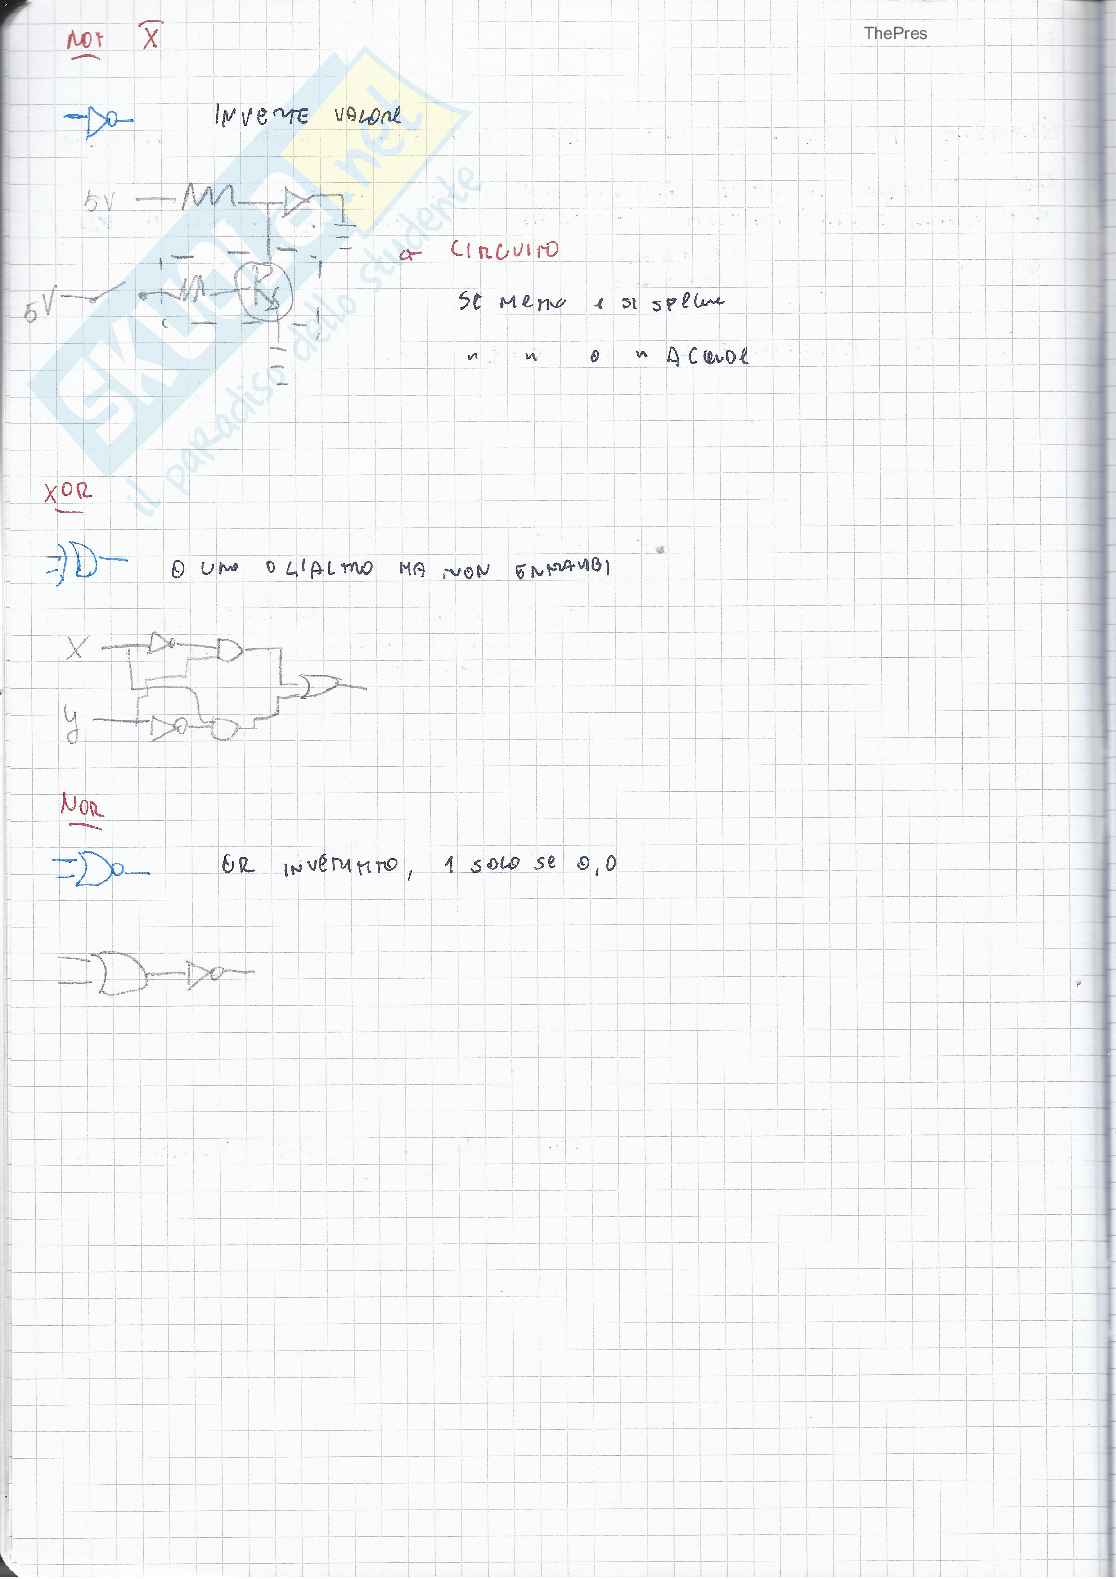 ThePres
NOT X̅
INVERTE VALORE
5V
CIRCUITO
5V
SE METTO 1 SI SPEGNE
" " 0 " ACCENDE
SKUOLA.net
il paradiso dello studente
XOR
O UNO O L'ALTRO MA NON ENTRAMBI
X
Y
NOR
OR INVERTITO, 1 SOLO SE 0,0